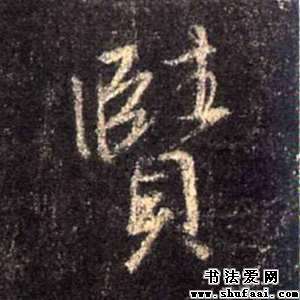 賢
书法爱网
www.shufaai.com